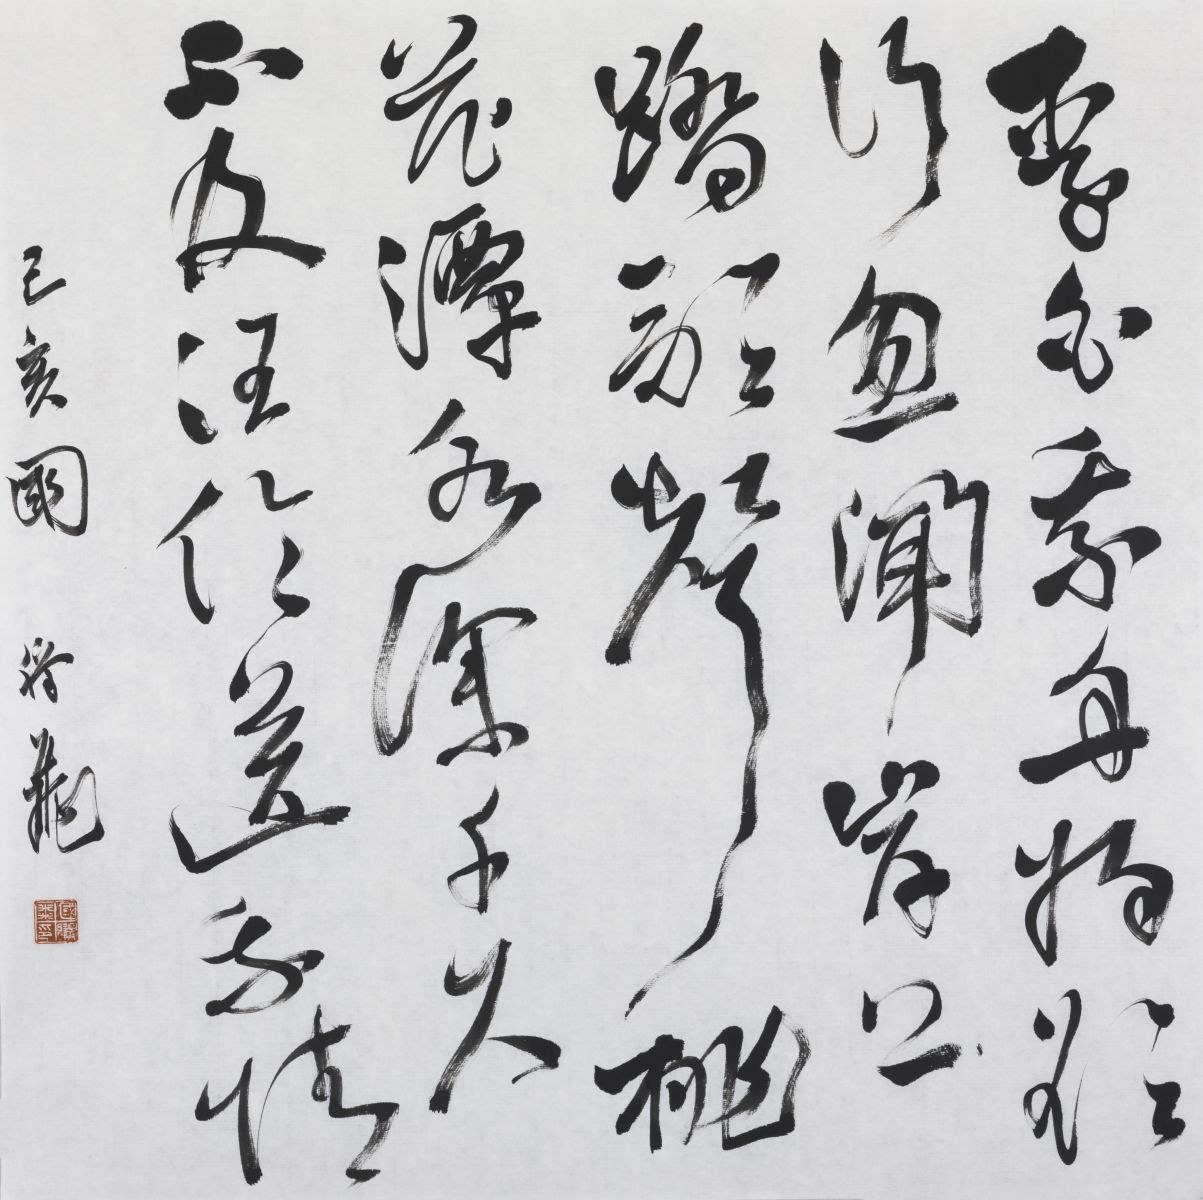 李白乘舟將欲
行忽聞岸上
踏歌聲桃
花潭水深千尺
不及汪倫送我情
己亥國